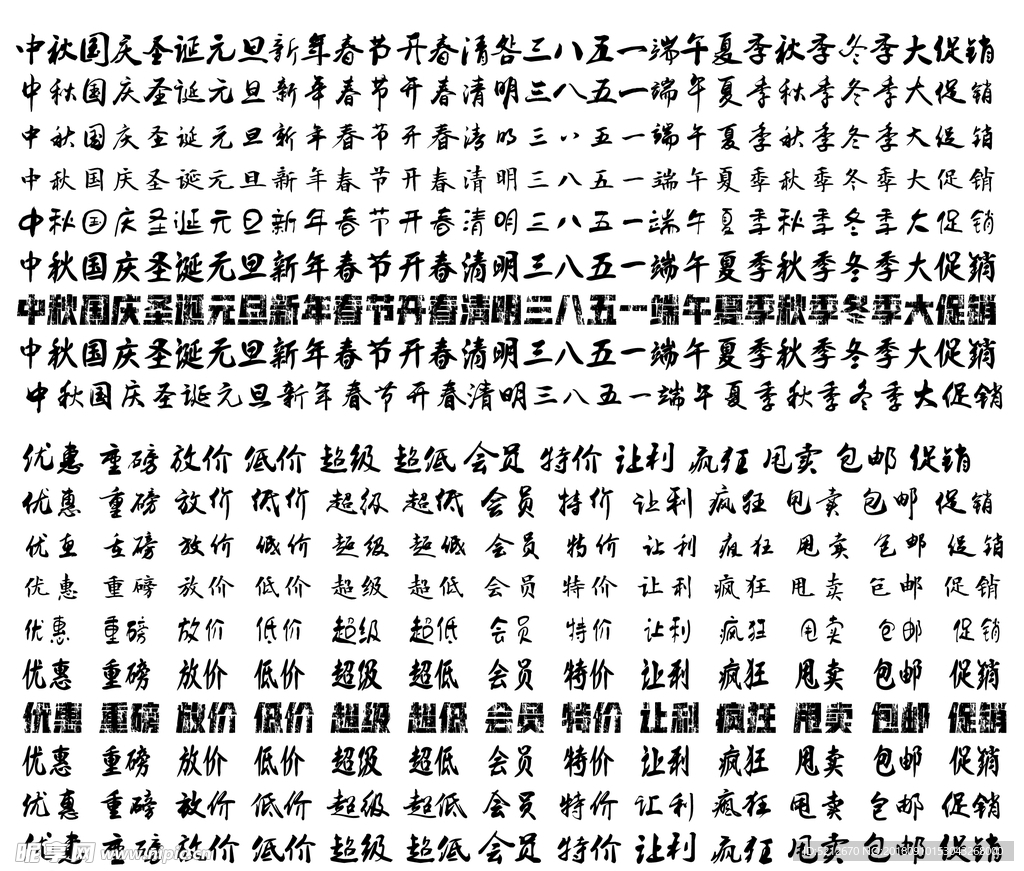 中秋国庆圣诞元旦新年春节开春清明三八五一端午夏季秋季冬季大促销
中秋国庆圣诞元旦新年春节开春清明三八五一端午夏季秋季冬季大促销
中秋国庆圣诞元旦新年春节开春清明三八五一端午夏季秋季冬季大促销
中秋国庆圣诞元旦新年春节开春清明三八五一端午夏季秋季冬季大促销
中秋国庆圣诞元旦新年春节开春清明三八五一端午夏季秋季冬季大促销
中秋国庆圣诞元旦新年春节开春清明三八五一端午夏季秋季冬季大促销
中秋国庆圣诞元旦新年春节开春清明三八五一端午夏季秋季冬季大促销
中秋国庆圣诞元旦新年春节开春清明三八五一端午夏季秋季冬季大促销
中秋国庆圣诞元旦新年春节开春清明三八五一端午夏季秋季冬季大促销
优惠 重磅 放价 低价 超级 超低 会员 特价 让利 疯狂 甩卖 包邮 促销
优惠 重磅 放价 低价 超级 超低 会员 特价 让利 疯狂 甩卖 包邮 促销
优惠 重磅 放价 低价 超级 超低 会员 特价 让利 疯狂 甩卖 包邮 促销
优惠 重磅 放价 低价 超级 超低 会员 特价 让利 疯狂 甩卖 包邮 促销
优惠 重磅 放价 低价 超级 超低 会员 特价 让利 疯狂 甩卖 包邮 促销
优惠 重磅 放价 低价 超级 超低 会员 特价 让利 疯狂 甩卖 包邮 促销
优惠 重磅 放价 低价 超级 超低 会员 特价 让利 疯狂 甩卖 包邮 促销
优惠 重磅 放价 低价 超级 超低 会员 特价 让利 疯狂 甩卖 包邮 促销
优惠 重磅 放价 低价 超级 超低 会员 特价 让利 疯狂 甩卖 包邮 促销
优惠 重磅 放价 低价 超级 超低 会员 特价 让利 疯狂 甩卖 包邮 促销
昵享网 www.nipic.cn